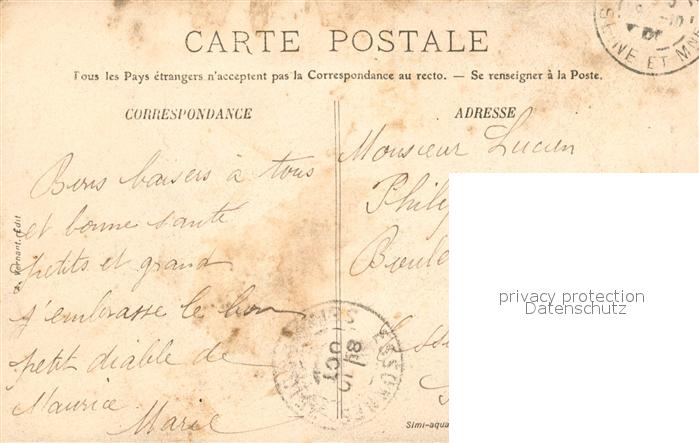 CARTE POSTALE
Tous les Pays étrangers n'acceptent pas la Correspondance au recto. — Se renseigner à la Poste.
CORRESPONDANCE
ADRESSE
Bons baisers à tous
et bonne santé
petits et grand
j'embrasse le bon
petit diable de
Maurice
Marie
Monsieur Lucien
SEINE ET MNE
8 OCT
privacy protection
Datenschutz
Edit
Simi-aqua